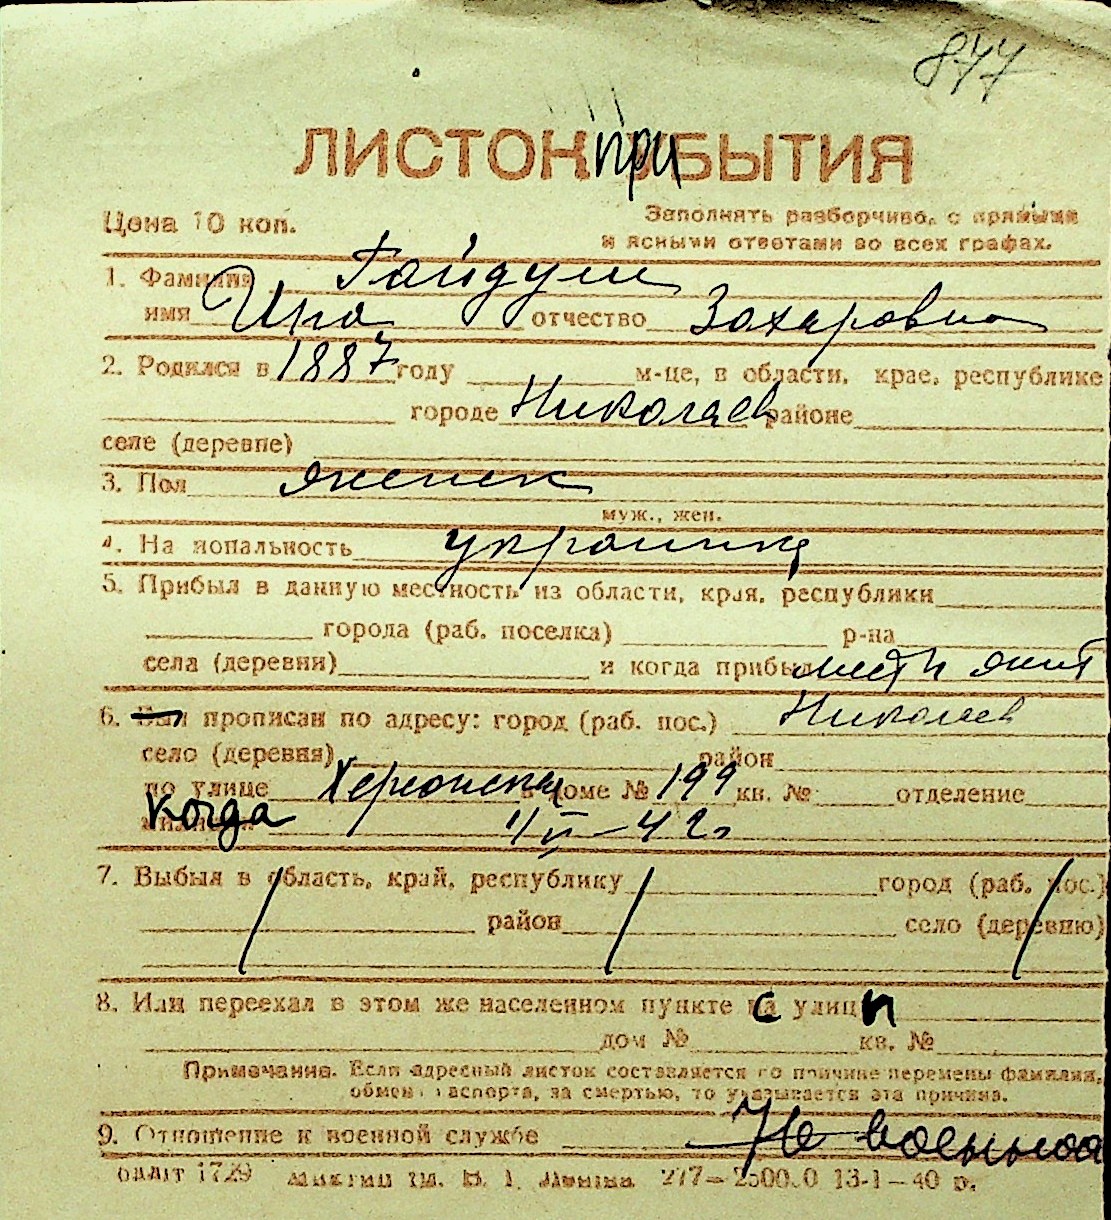 877
ЛИСТОК при УБЫТИЯ
Цена 10 коп.
Заполнять разборчиво, с прямыми
и ясными ответами во всех графах.
1. Фамилия Гайдуш
имя отчество Захаровна
2. Родился в 1887 году м-це, в области, крае, республике
городе Николаев районе
селе (деревне)
3. Пол женск
муж., жен.
4. Национальность украинка
5. Прибыл в данную местность из области, края, республики
города (раб. поселка) р-на
села (деревни) и когда прибыл местн жит
6. Был прописан по адресу: город (раб. пос.) Николаев
село (деревня) район
по улице Херсонская в доме № 199 кв. № отделение
когда милиции 1/II-42г
7. Выбыл в область, край, республику город (раб. пос.)
район село (деревню)
8. Или переехал в этом же населенном пункте на с улицы
дом № кв. №
Примечание. Если адресный листок составляется по причине перемены фамилии,
обмен паспорта, за смертью, то указывается эта причина.
9. Отношение к военной службе Не военнооб
1729 277—250000 13-1—40 р.